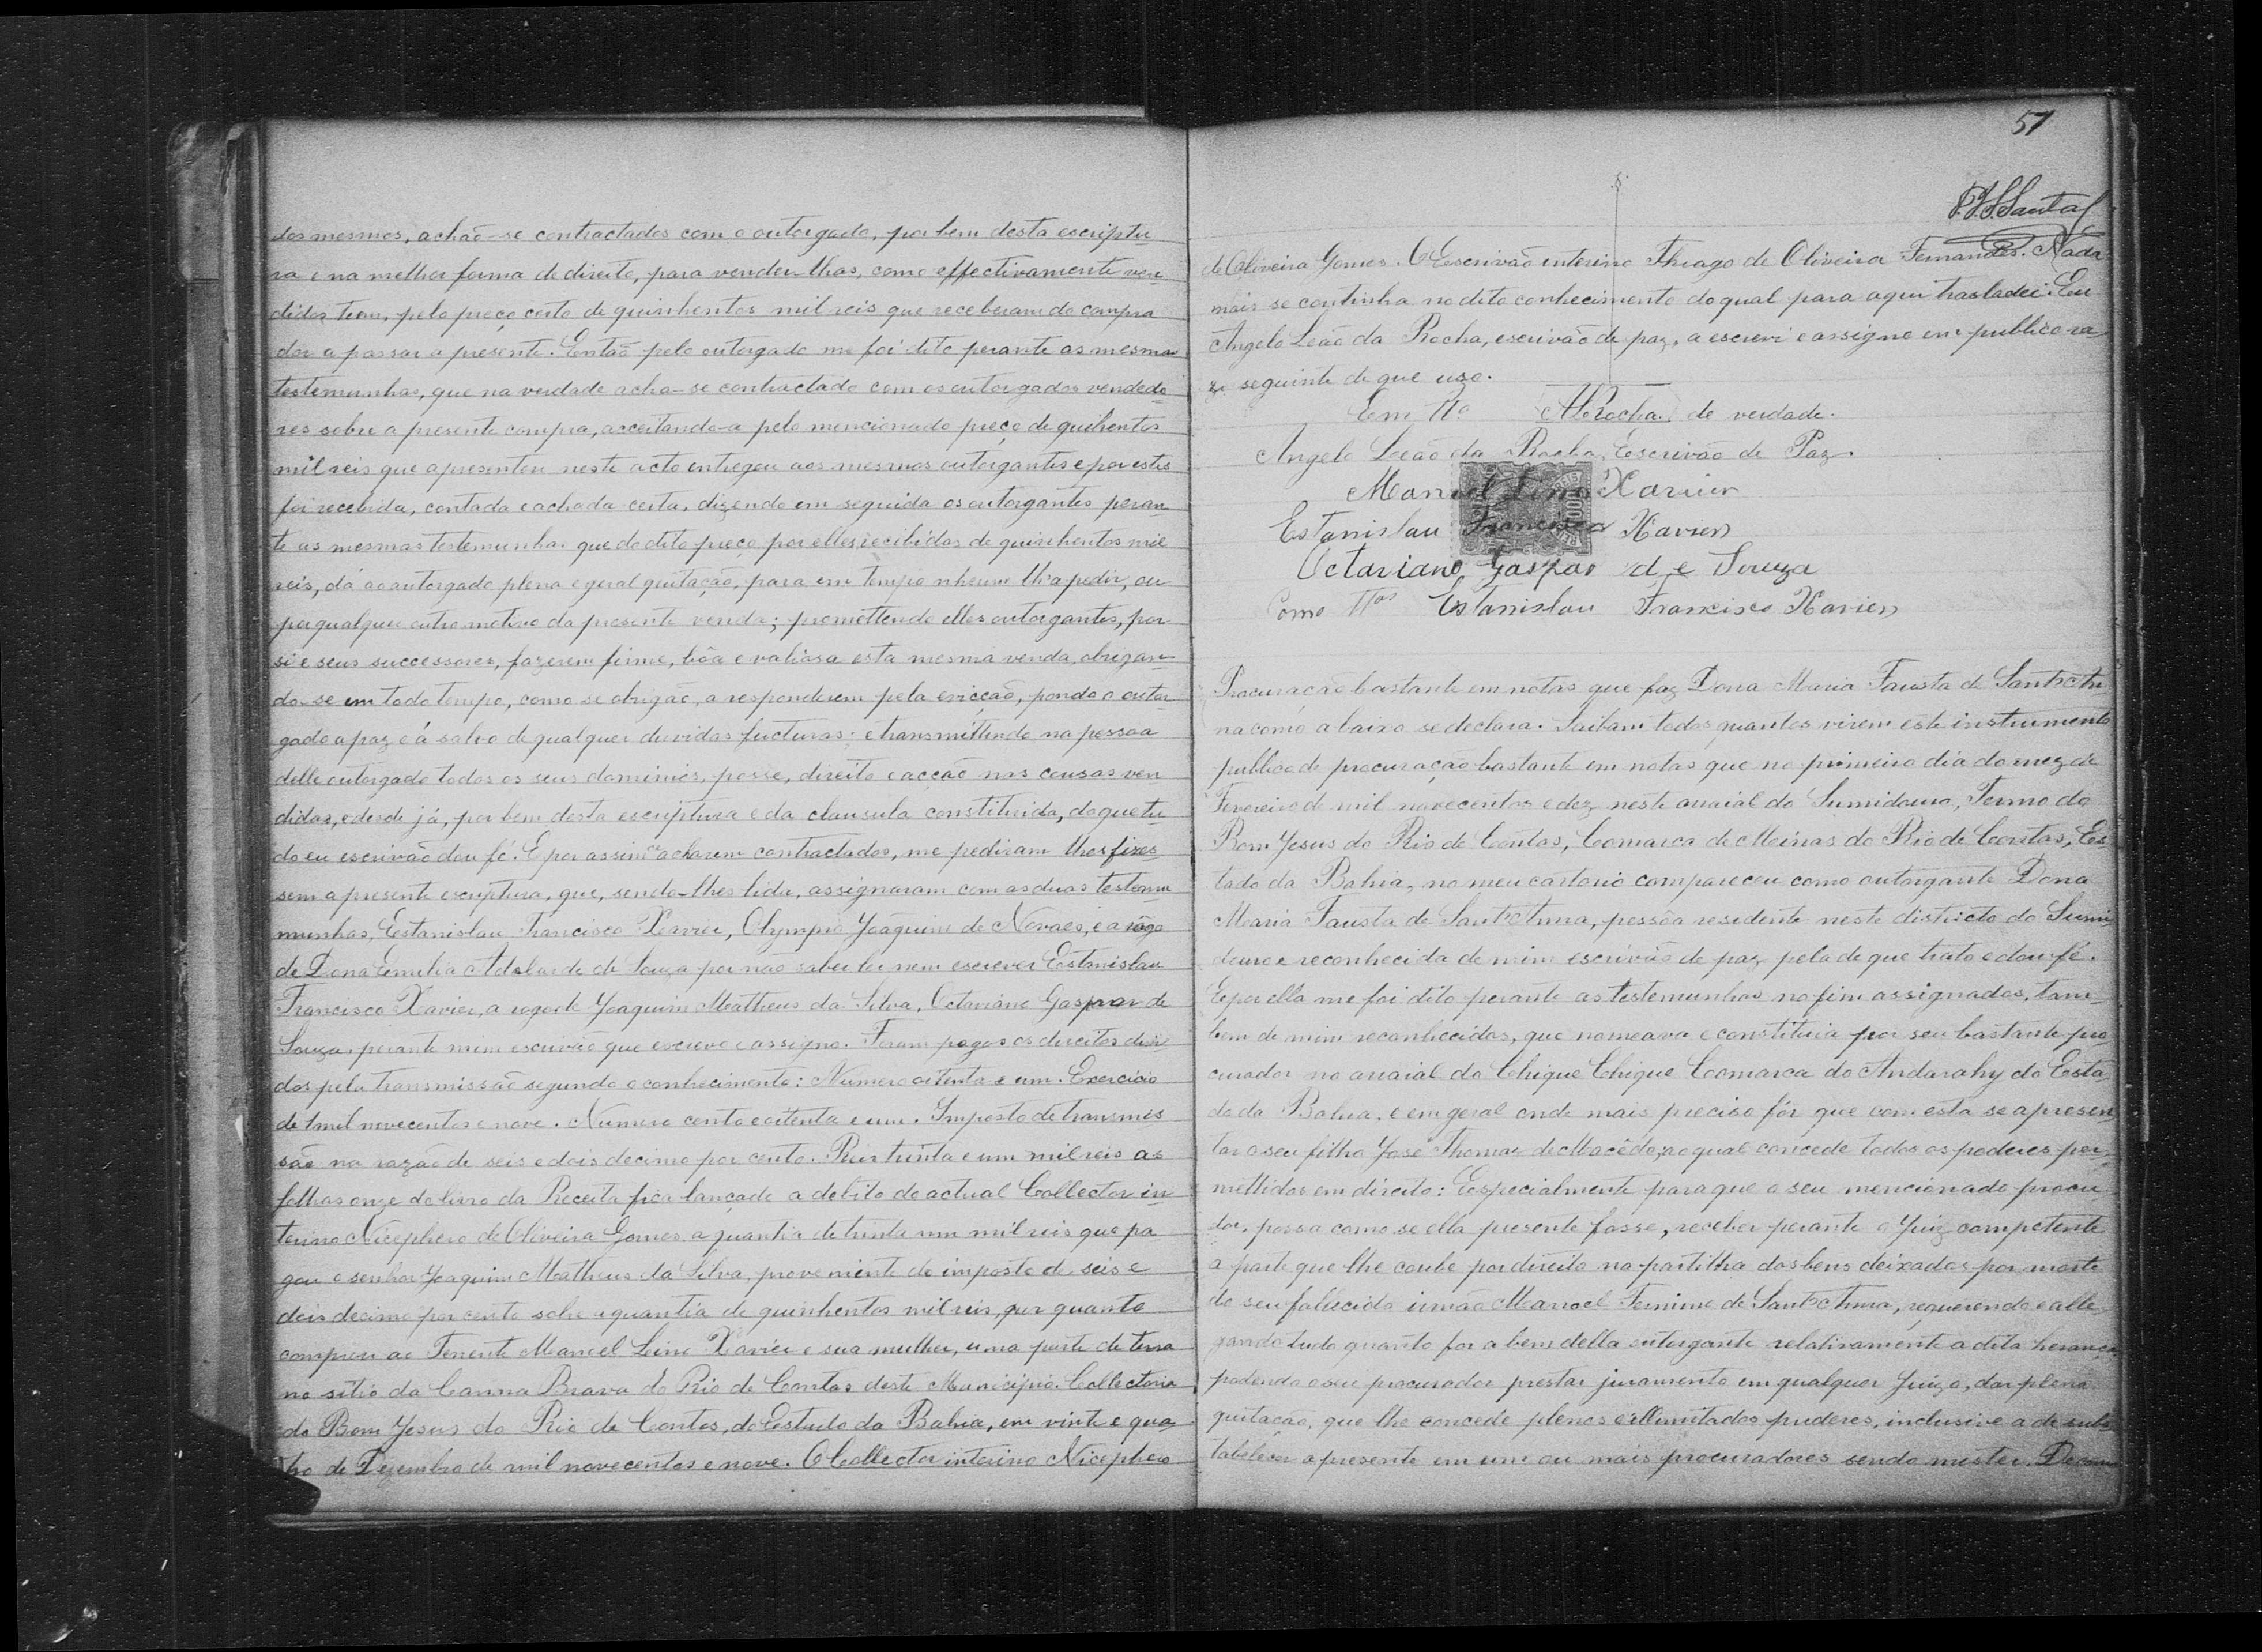 dos mesmos, achaõ-se contractados com o outorgado, por bem desta escriptu
ra e na melhor forma de direito, para vender-lhas, como effectivamente ven-
didas teem, pelo preço certo de quinhentos mil reis que receberam do compra
dor a passar a presente. Então pelo outorgado me foi dito perante as mesmas
testemunhas, que na verdade acha-se contractado com os outorgados vendedo
res sobre a presente compra, acceitando-a pelo mencionado preço de quihentos
mil reis que apresentou neste acto entregou aos mesmos outorgantes e por estes
foi recebida, contada e achada certa, dizendo em seguida os outorgantes peran-
te as mesmas testemunha. que do dito preço por elles recibidos de quinhentos mil
reis, dá ao outorgado plena e geral quitação, para em tempo nheum lh'a pedir, ou
por qualquer outro motivo da presente venda; promettendo elles outorgantes, por
si e seus successores, fazerem firme, bôa e valiosa esta mesma venda, obrigan-
do-se em todo tempo, como se obrigão, a responderem pela evicção, pondo o outor
gado a paz e á salvo de qualquer duvidas fucturas; e transmittendo na pessoa
delle outorgado todos os seus dominios, posse, direito e acção nas cousas ven
didas, e desde já, por bem desta escriptura e da clausula constituida, do que tu-
do eu escrivão dou fé. E por assim se acharem contractados, me pediram lhes fizes
sem a presente escriptura, que, sendo-lhes lida, assignaram com as duas testemu
munhas, Estanislau Francisco Xavier, Olympio Joaquim de Novaes, e a rôgo
de Dona Emilia Adelaide de Souza por não saber ler nem escrever Estanislau
Francisco Xavier, a rogo de Joaquim Matheus da Silva, Octaviano Gaspar de
Souza, perante mim escrivão que escrevo e assigno. Foram pagos os direitos devi
dos pela transmissão segundo o conhecimento: Numero oitenta e um. Exercicio
de 1mil novecentos e nove. Numero cento e oitenta e um. Imposto de transmis
são na razão de seis e dois decimo por cento. Reis trinta e um mil reis as
folhas onze do livro da Receita fica lançado a debito do actual Collector in-
terino Nicephero de Oliveira Gomes a quantia de trinta um mil reis que pa-
gou o senhor Joaquim Matheus da Silva, proveniente de imposto de seis e
dois decimo por cento sobre a quantia de quinhentos mil reis, por quanto
comprou ao Tenente Manoel Lino Xavier e sua mulher, uma parte de terra
no sitio da Canna Brava do Rio de Contas deste Municipio. Collectoria
do Bom Jesus do Rio de Contas, do Estado da Bahia, em vinte e qua-
tro de Dezembro de mil novecentos e nove. O Collector interino Nicephero
51
de Oliveira Gomes. O Escrivão interino Thiago de Oliveira Fernandes. Nada
mais se continha no dito conhecimento do qual para aqui trasladei. Eu
Angelo Leão da Rocha, escrivão de paz, a escrevi e assigno em publico ra-
zo seguinte de que uso.
Em tto ALRocha de verdade.
Angelo Leão da Rocha, Escrivão de Paz.
Manoel Lino Xavier
Estanislau Francisco Xavier
Octaviano Gaspar de Souza
Como ttas Estanislau Francisco Xavier
Procuração bastante em notas que faz Dona Maria Fausta de Sant'An
na como abaixo se declara. Saibam todos quantos virem este instrumento
publico de procuração bastante em notas que no primeiro dia do mez de
Fevereiro de mil novecentos e dez neste arraial do Sumidouro, Termo do
Bom Jesus do Rio de Contas, Comarca de Minas do Rio de Contas, Es-
tado da Bahia, no meu cartorio compareceu como outorgante Dona
Maria Fausta de Sant'Anna, pessôa residente neste districto do Sumi-
douro e reconhecida de mim escrivão de paz pela de que trato e dou fé.
E por ella me foi dito perante as testemunhas no fim assignados, tam-
bem de mim reconhecidos, que nomeava e constituia por seu bastante pro-
curador no arraial do Chique Chique Comarca do Andarahy do Esta-
do da Bahia, e em geral onde mais preciso fôr que com esta se apresen-
tar o seu filho José Thomaz de Macêdo, ao qual concede todos os poderes per-
mettidos em direito: Especialmente para que o seu mencionado procu
dor, possa como se ella presente fosse, receber perante o Juiz competente
a parte que lhe coube por direito na partilha dos bens deixados por morte
do seu fallecido irmão Manoel Firmino de Sant'Anna, requerendo e alle-
gando tudo quanto for a bem della outorgante relativamente a dita herança
podendo o seu procurador prestar juramento em qualquer Juizo, dar plena
quitacão, que lhe concede plenos e illimitados puderes, inclusive a de subs
tabelecer a presente em um ou mais procuradores sendo mister. De como